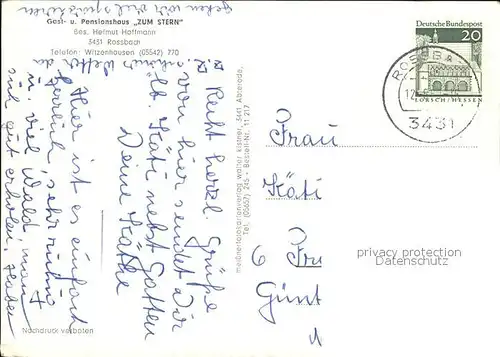 Gast- u. Pensionshaus „ZUM STERN"
Bes. Helmut Hoffmann
3431 Rossbach
Telefon: Witzenhausen (05542) 770
Recht herzl. Grüße
von hier sendet Dir
lb. Käti nebst Gatten
Deine Käthe
Hier ist es einfach
herrlich, sehr ruhig
u. viel Wald, man
sich gut erholen, haben
z. Z. schönes Wetter da
gehen wir viel spazieren
Nachdruck verboten
meißnerfotokartenverlag walter kistner, 3441 Abterode,
Tel. (05657) 245 - Bestell-Nr. 11 217
Deutsche Bundespost
20
LORSCH/HESSEN
3431
Frau
Käti
6
Günt
privacy protection
Datenschutz